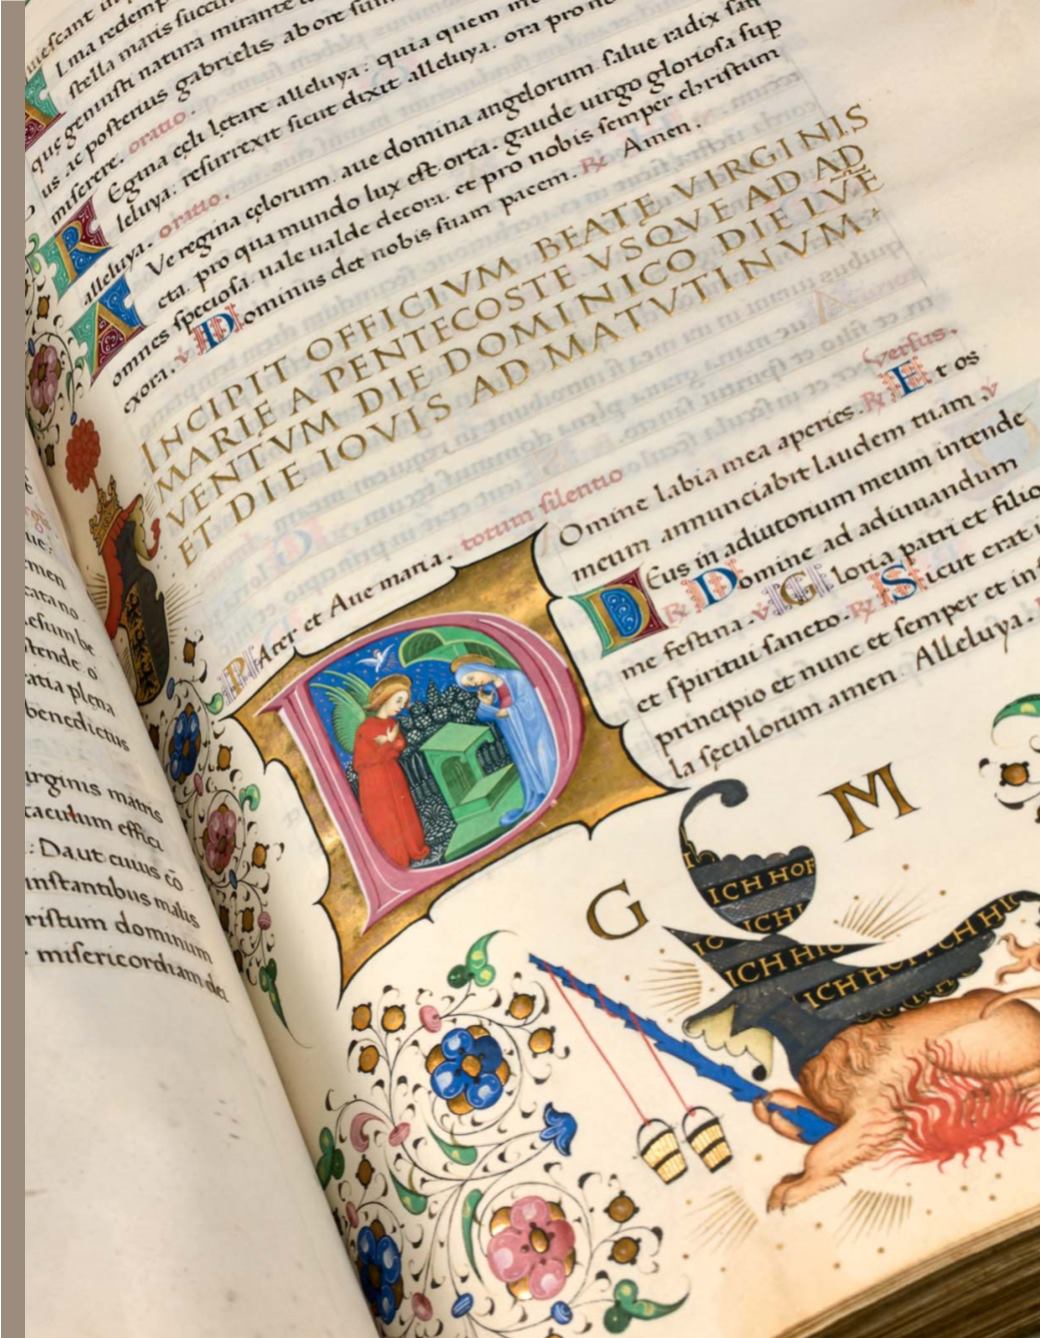 uiescant in
Lma redemp
stella maris succur
que genuisti natura mirante t
us ac posterius gabrielis ab ore sum
miserere. oratio.
REgina celi letare alleluya: quia quem me
leluya: resurrexit sicut dixit alleluya. ora pro no
alleluya. oratio.
AVe regina celorum. aue domina angelorum. salue radix san
cta. pro qua mundo lux est orta. gaude uirgo gloriosa sup
omnes speciosa. uale ualde decora. et pro nobis semper christum
exora. v Dominus det nobis suam pacem. R Amen.
INCIPIT OFFICIVM BEATE VIRGINIS
MARIE A PENTECOSTE VSQVE AD AD
VENTVM DIE DOMINICO DIE IVE
ET DIE IOVIS AD MATVTINVM
PAter et Aue maria. totum silentio
DOmine labia mea aperies. R Et os versus.
meum annunciabit laudem tuam. v
DEus in adiutorium meum intende
R Domine ad adiuuandum
me festina. v Gloria patri et filio
et spiritui sancto. R Sicut erat i
principio et nunc et semper et in s
la seculorum amen. Alleluya.
G M
ICH HOF
ICH HI
ICH HOF
ICH HI
rmen
catano
tende o
ratia plena
benedictus
irginis matris
tacutum effici
: Da ut cuius cō
instantibus malis
ristum dominum
misericordiam dei